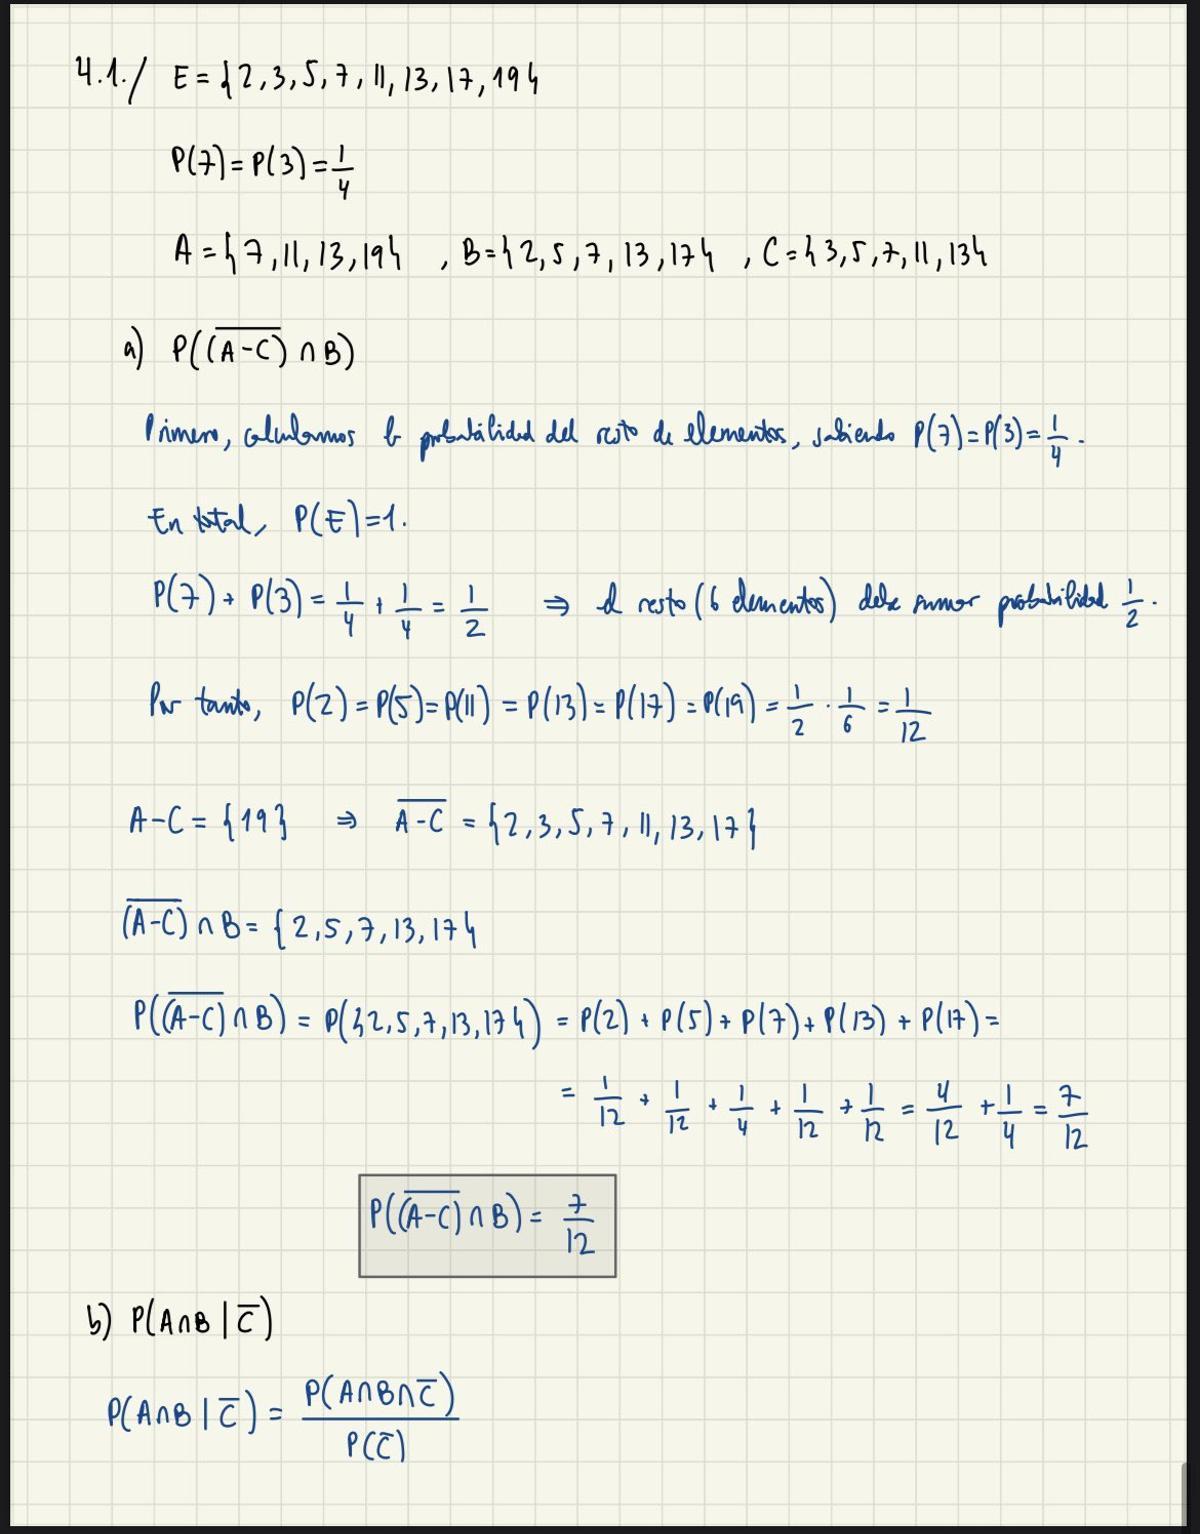 4.1./ E = {2, 3, 5, 7, 11, 13, 17, 19}
P(7) = P(3) = 1/4
A = {7, 11, 13, 19} , B = {2, 5, 7, 13, 17} , C = {3, 5, 7, 11, 13}
a) P((\overline{A-C}) ∩ B)
Primero, calculamos la probabilidad del resto de elementos, sabiendo P(7) = P(3) = 1/4.
En total, P(E) = 1.
P(7) + P(3) = 1/4 + 1/4 = 1/2 ⇒ el resto (6 elementos) debe sumar probabilidad 1/2.
Por tanto, P(2) = P(5) = P(11) = P(13) = P(17) = P(19) = 1/2 · 1/6 = 1/12
A-C = {19} ⇒ \overline{A-C} = {2, 3, 5, 7, 11, 13, 17}
(\overline{A-C}) ∩ B = {2, 5, 7, 13, 17}
P((\overline{A-C}) ∩ B) = P({2, 5, 7, 13, 17}) = P(2) + P(5) + P(7) + P(13) + P(17) =
= 1/12 + 1/12 + 1/4 + 1/12 + 1/12 = 4/12 + 1/4 = 7/12
P((\overline{A-C}) ∩ B) = 7/12
b) P(A∩B | \overline{C})
P(A∩B | \overline{C}) = P(A∩B∩\overline{C}) / P(\overline{C})